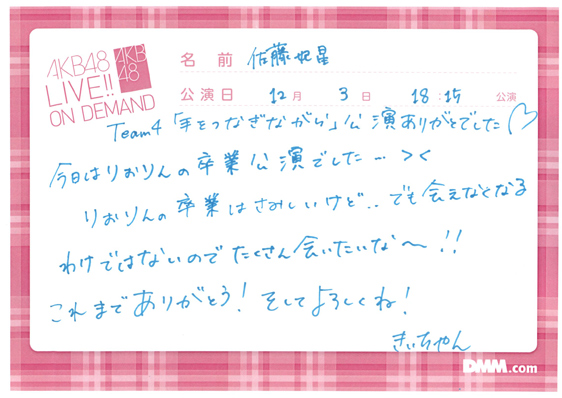 AKB48
LIVE!!
ON DEMAND
AKB
48
名前 佐藤妃星
公演日 12月 3日 18:15 公演
Team4「手をつなぎながら」公演ありがとでした♡
今日はりおりんの卒業公演でした… ><
りおりんの卒業はさみしいけど.. でも会えなくなる
わけではないので たくさん会いたいな〜!!
これまでありがとう! そしてよろしくね!
きぃちゃん
DMM.com